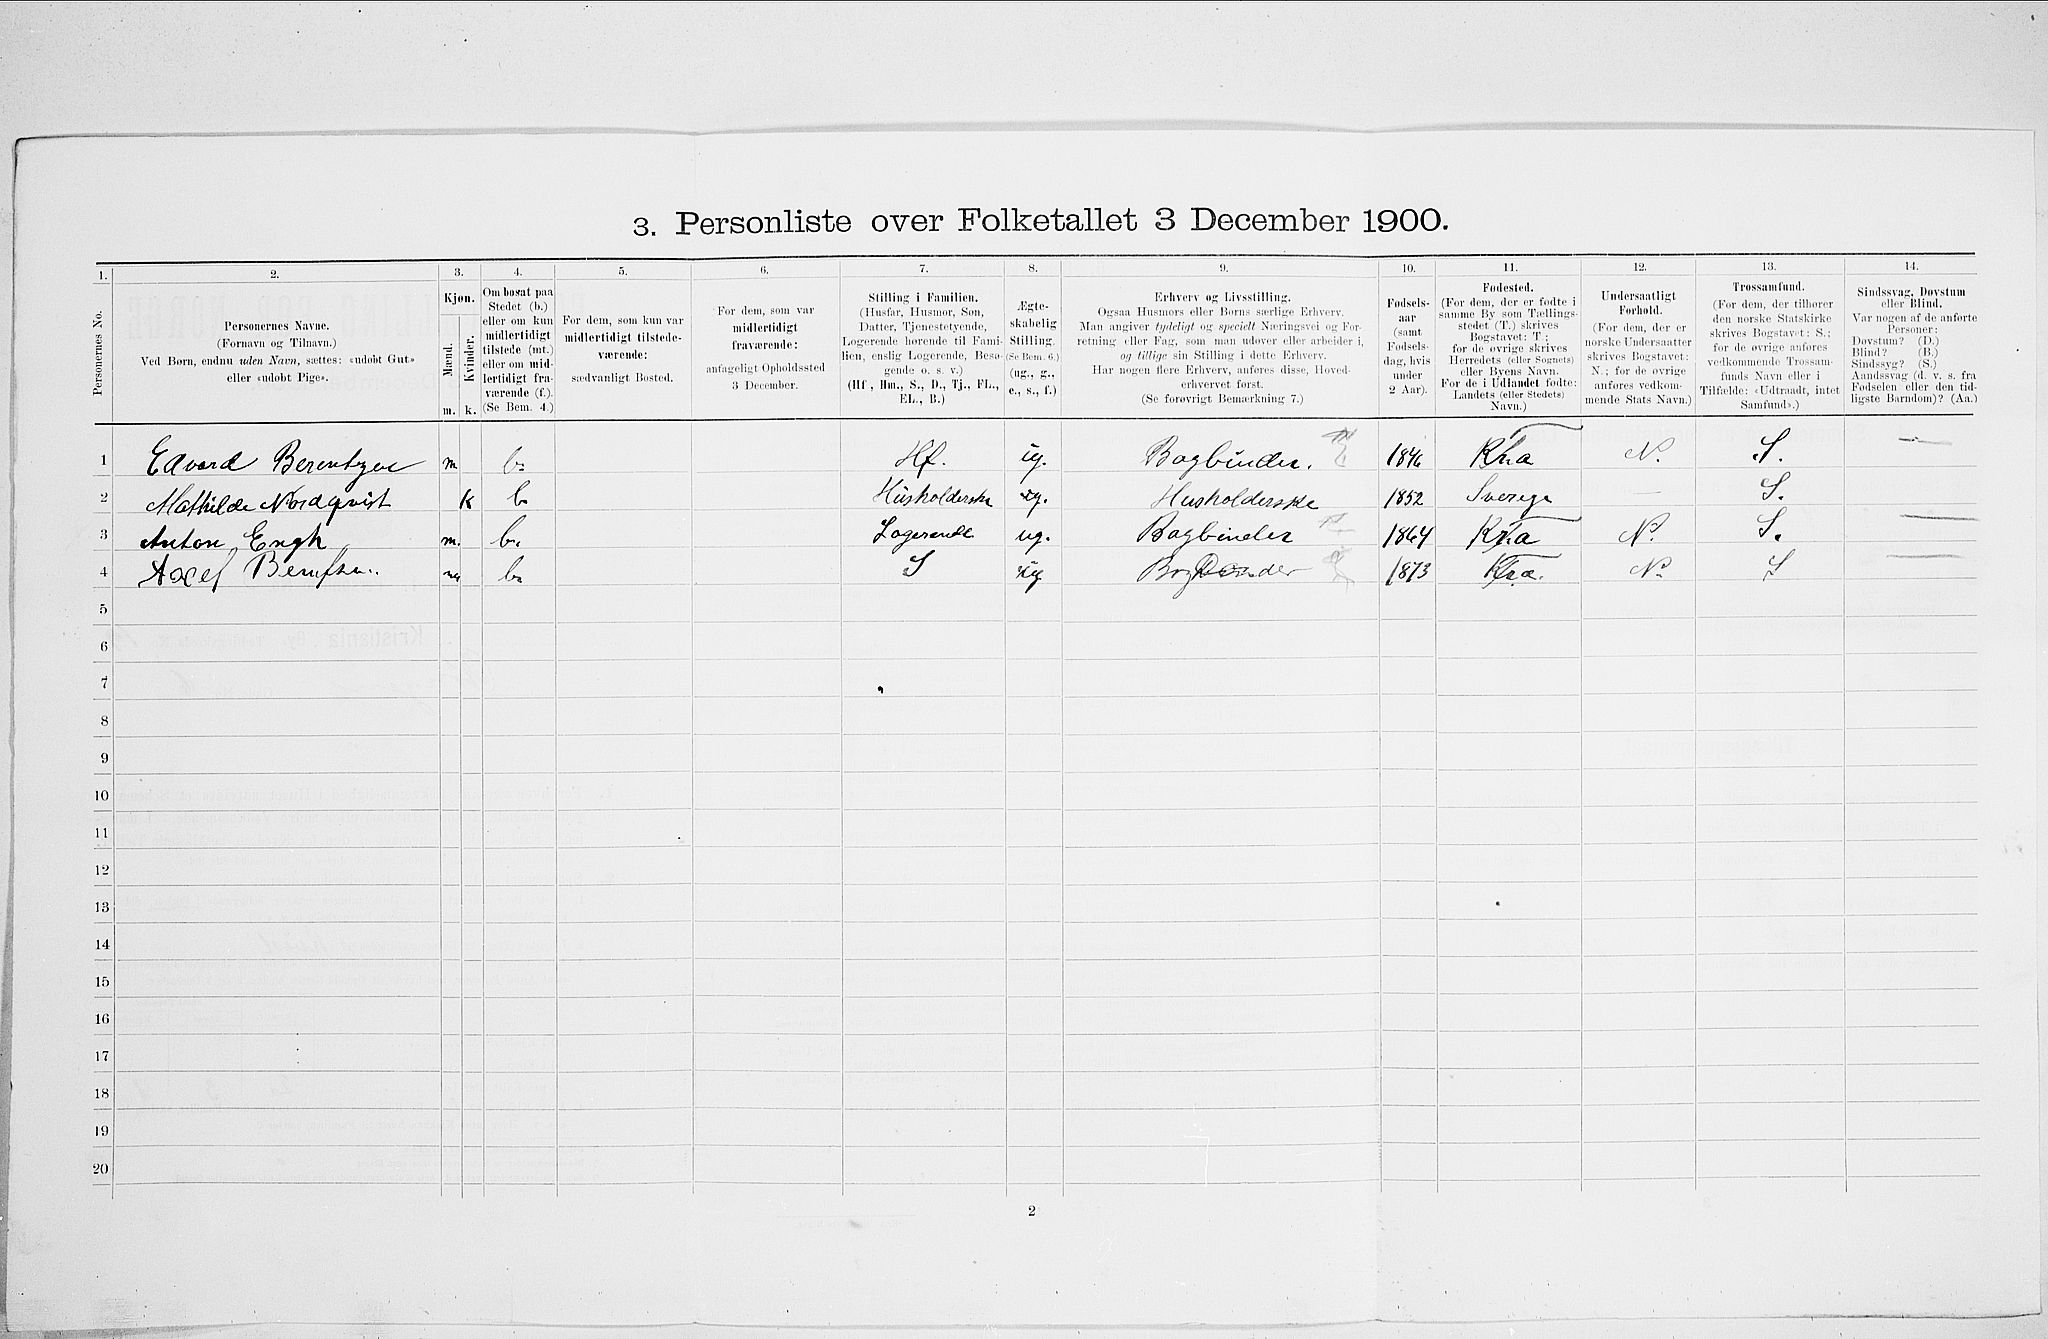 3. Personliste over Folketallet 3 December 1900.
1. 2. 3. 4. 5. 6. 7. 8. 9. 10. 11. 12. 13. 14.
Personernes No.
Personernes Navne.
(Fornavn og Tilnavn.)
Ved Børn, endnu uden Navn, sættes: «udøbt Gut»
eller «udøbt Pige».
Kjøn.
Mænd.
Kvinder.
m. k.
Om bosat paa
Stedet (b.)
eller om kun
midlertidigt
tilstede (mt.)
eller om mid-
lertidigt fra-
værende (f.).
(Se Bem. 4.)
For dem, som kun var
midlertidigt tilstede-
værende:
sædvanligt Bosted.
For dem, som var
midlertidigt
fraværende:
antageligt Opholdssted
3 December.
Stilling i Familien.
(Husfar, Husmor, Søn,
Datter, Tjenestetyende,
Logerende hørende til Fami-
lien, enslig Logerende, Besø-
gende o. s. v.)
(Hf., Hm., S., D., Tj., FL.,
EL., B.)
Ægte-
skabelig
Stilling.
(Se Bem. 6.)
(ug., g.,
e., s., f.)
Erhverv og Livsstilling.
Ogsaa Husmors eller Børns særlige Erhverv.
Man angiver tydeligt og specielt Næringsvei og For-
retning eller Fag, som man udøver eller arbeider i,
og tillige sin Stilling i dette Erhverv.
Har nogen flere Erhverv, anføres disse, Hoved-
erhvervet først.
(Se forøvrigt Bemærkning 7.)
Fødsels-
aar
(samt
Fødsels-
dag, hvis
under
2 Aar).
Fødested.
(For dem, der er fødte i
samme By som Tællings-
stedet (T.) skrives
Bogstavet: T;
for de øvrige skrives
Herredets (eller Sognets)
eller Byens Navn.
For de i Udlandet fødte:
Landets (eller Stedets)
Navn.)
Undersaatligt
Forhold.
(For dem, der er
norske Undersaatter
skrives Bogstavet:
N.; for de øvrige
anføres vedkom-
mende Stats Navn.)
Trossamfund.
(For dem, der tilhører
den norske Statskirke
skrives Bogstavet: S.;
for de øvrige anføres
vedkommende Trossam-
funds Navn eller i
Tilfælde: «Udtraadt, intet
Samfund».)
Sindssvag, Døvstum
eller Blind.
Var nogen af de anførte
Personer:
Døvstum? (D.)
Blind? (B.)
Sindssyg? (S.)
Aandssvag (d. v. s. fra
Fødselen eller den tid-
ligste Barndom)? (Aa.)
1 Edvard Berentzen m. b. Hf. ug. Bogbinder. 1846 Kria N. S. —
2 Mathilde Nordqvist k b Husholderske ug. Husholderske 1852 Sverige — S.
3 Anton Engh m. b. Logerende ug. Bogbinder 1864 Kria N. S. —
4 Axel m b. S ug 1873 Kria. N. S —
5
6
7
8
9
10
11
12
13
14
15
16
17
18
19
20
2